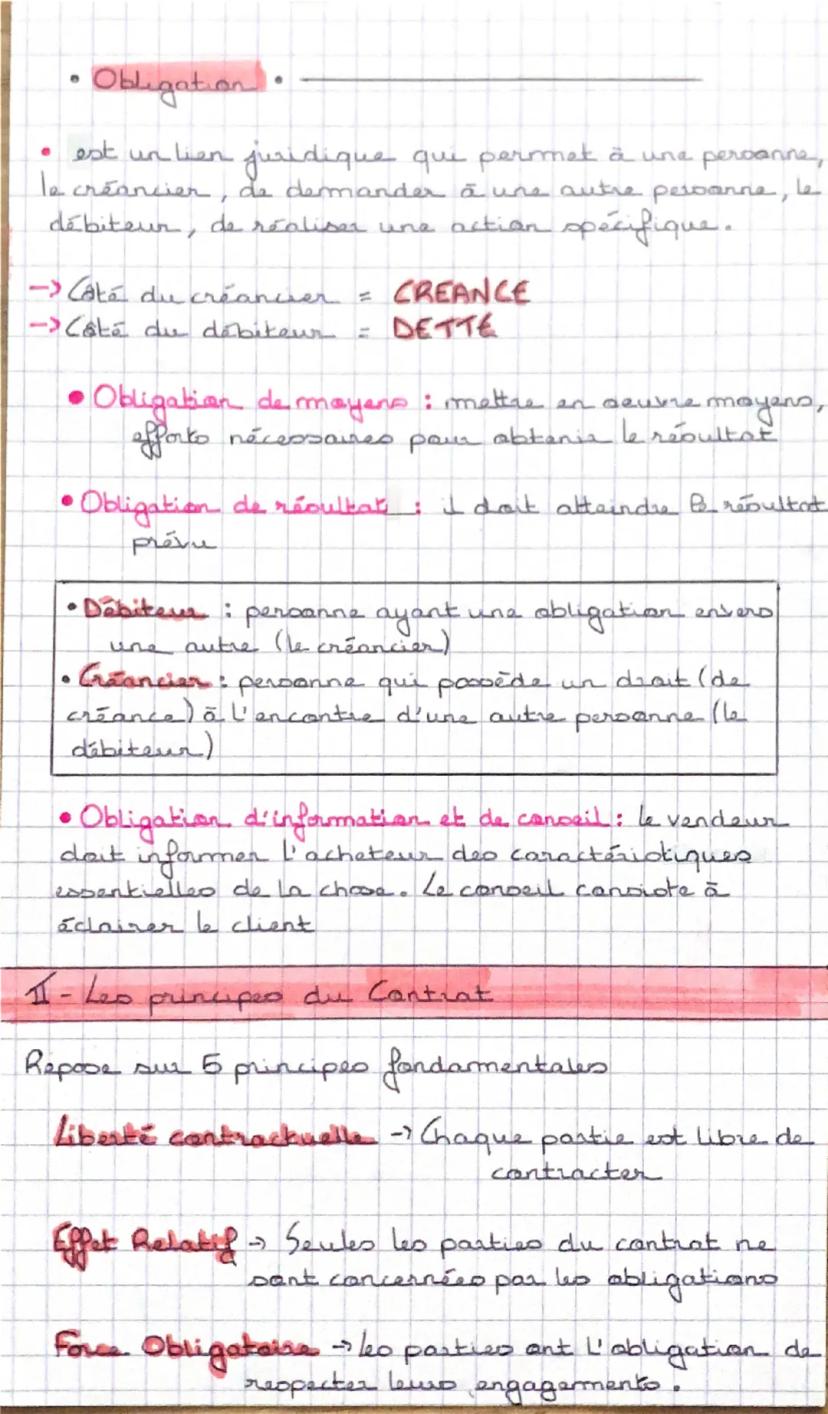 • Obligation •
• est un lien juridique qui permet à une personne,
le créancier, de demander à une autre personne, le
débiteur, de réaliser une action spécifique.
→ Côté du créancier = CREANCE
→ Côté du débiteur = DETTE
• Obligation de moyens : mettre en oeuvre moyens,
efforts nécessaires pour obtenir le résultat
• Obligation de résultat : il doit atteindre le résultat
prévu
• Débiteur : personne ayant une obligation envers
une autre (le créancier)
• Créancier : personne qui possède un droit (de
créance) à l'encontre d'une autre personne (le
débiteur)
• Obligation d'information et de conseil : le vendeur
doit informer l'acheteur des caractéristiques
essentielles de la chose. Le conseil consiste à
éclairer le client
II - Les principes du Contrat
Repose sur 5 principes fondamentales
Liberté contractuelle → Chaque partie est libre de
contracter
Effet Relatif → Seules les parties du contrat ne
sont concernées par les obligations
Force Obligatoire → les parties ont l'obligation de
respecter leurs engagements.